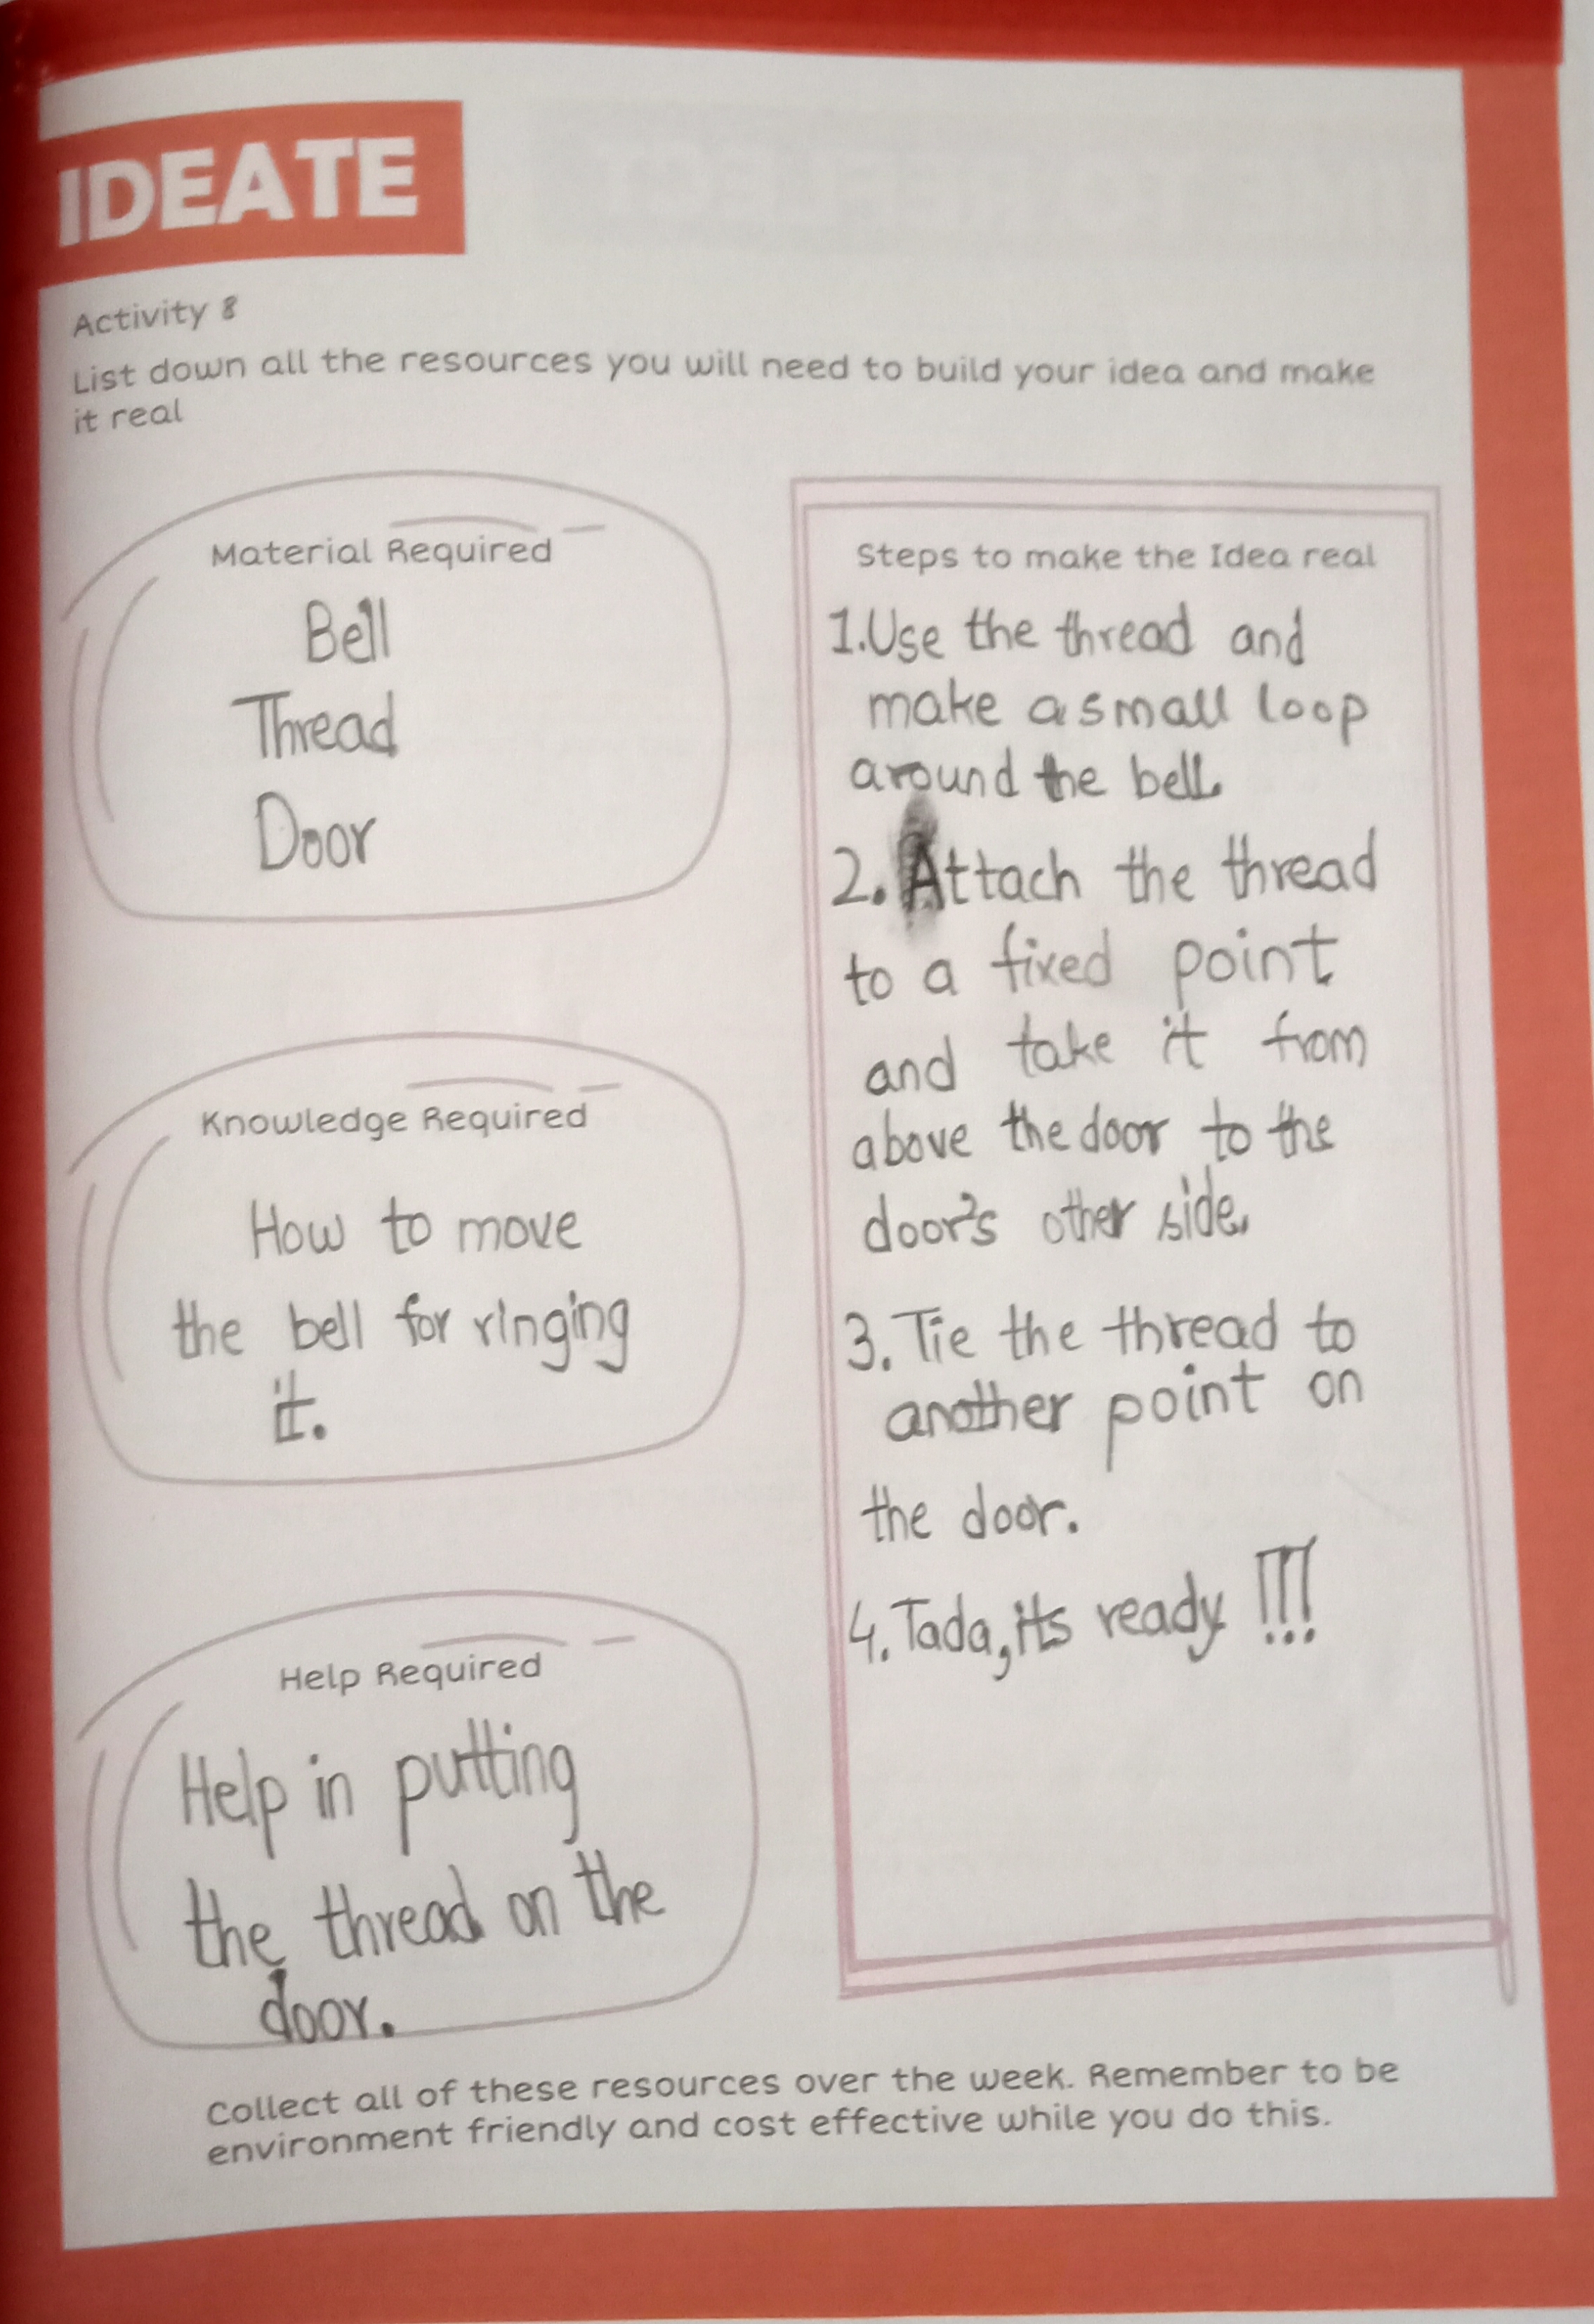 IDEATE
Activity 8
List down all the resources you will need to build your idea and make
it real
Material Required
Bell
Thread
Door
Knowledge Required
How to move
the bell for ringing
it.
Help Required
Help in putting
the thread on the
door.
Steps to make the Idea real
1.Use the thread and
make a small loop
around the bell.
2. Attach the thread
to a fixed point
and take it from
above the door to the
door's other side.
3. Tie the thread to
another point on
the door.
4. Tada, its ready !!!
Collect all of these resources over the week. Remember to be
environment friendly and cost effective while you do this.